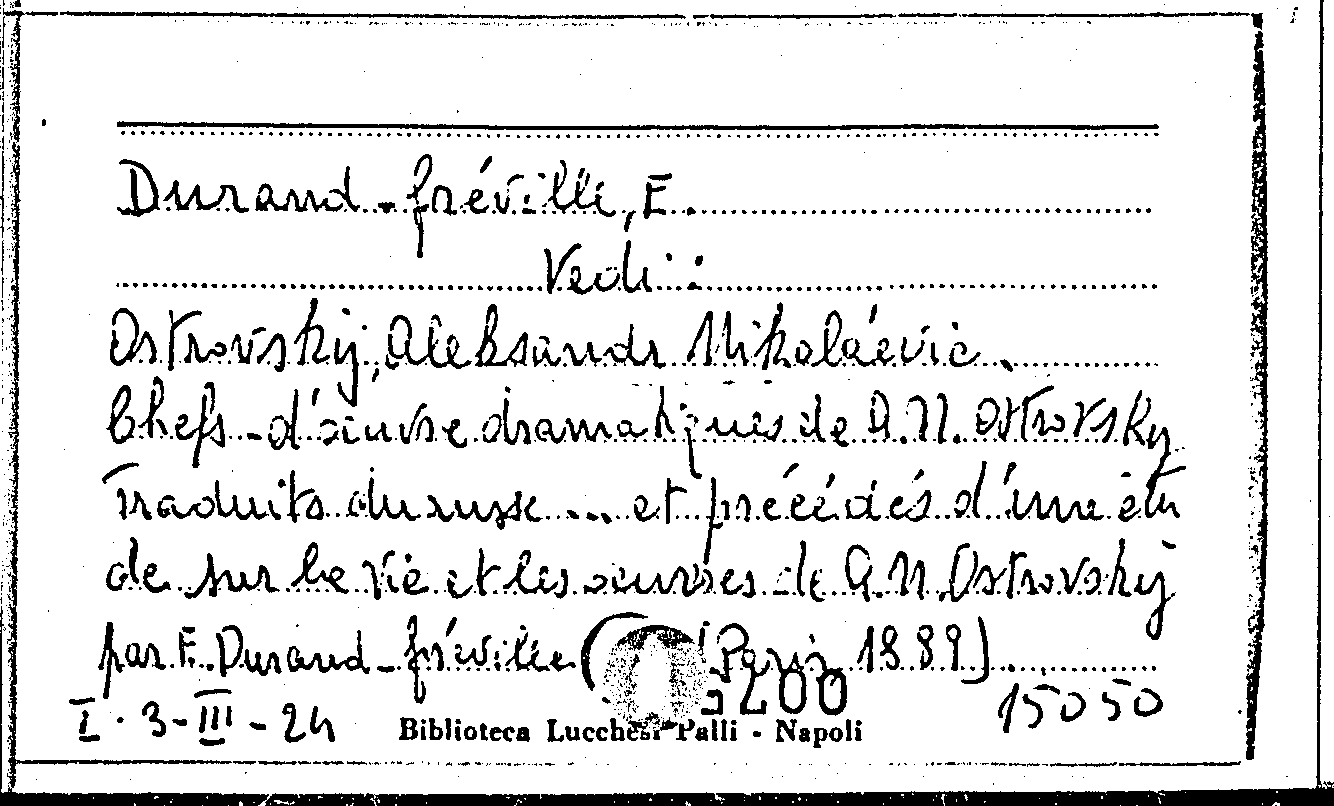 Durand-fréville, E.
Vedi:
Ostrovskij, Aleksandr Nikolaévic.
Chefs-d'oeuvre dramatiques de A.N. Ostrovsky
Traduits du russe ... et précédés d'une étu
de sur la vie et les oeuvres de A.N. Ostrovskij
par E. Durand-fréville (Paris, 1889).
I.3-III-24 15050
Biblioteca Lucchesi Palli - Napoli